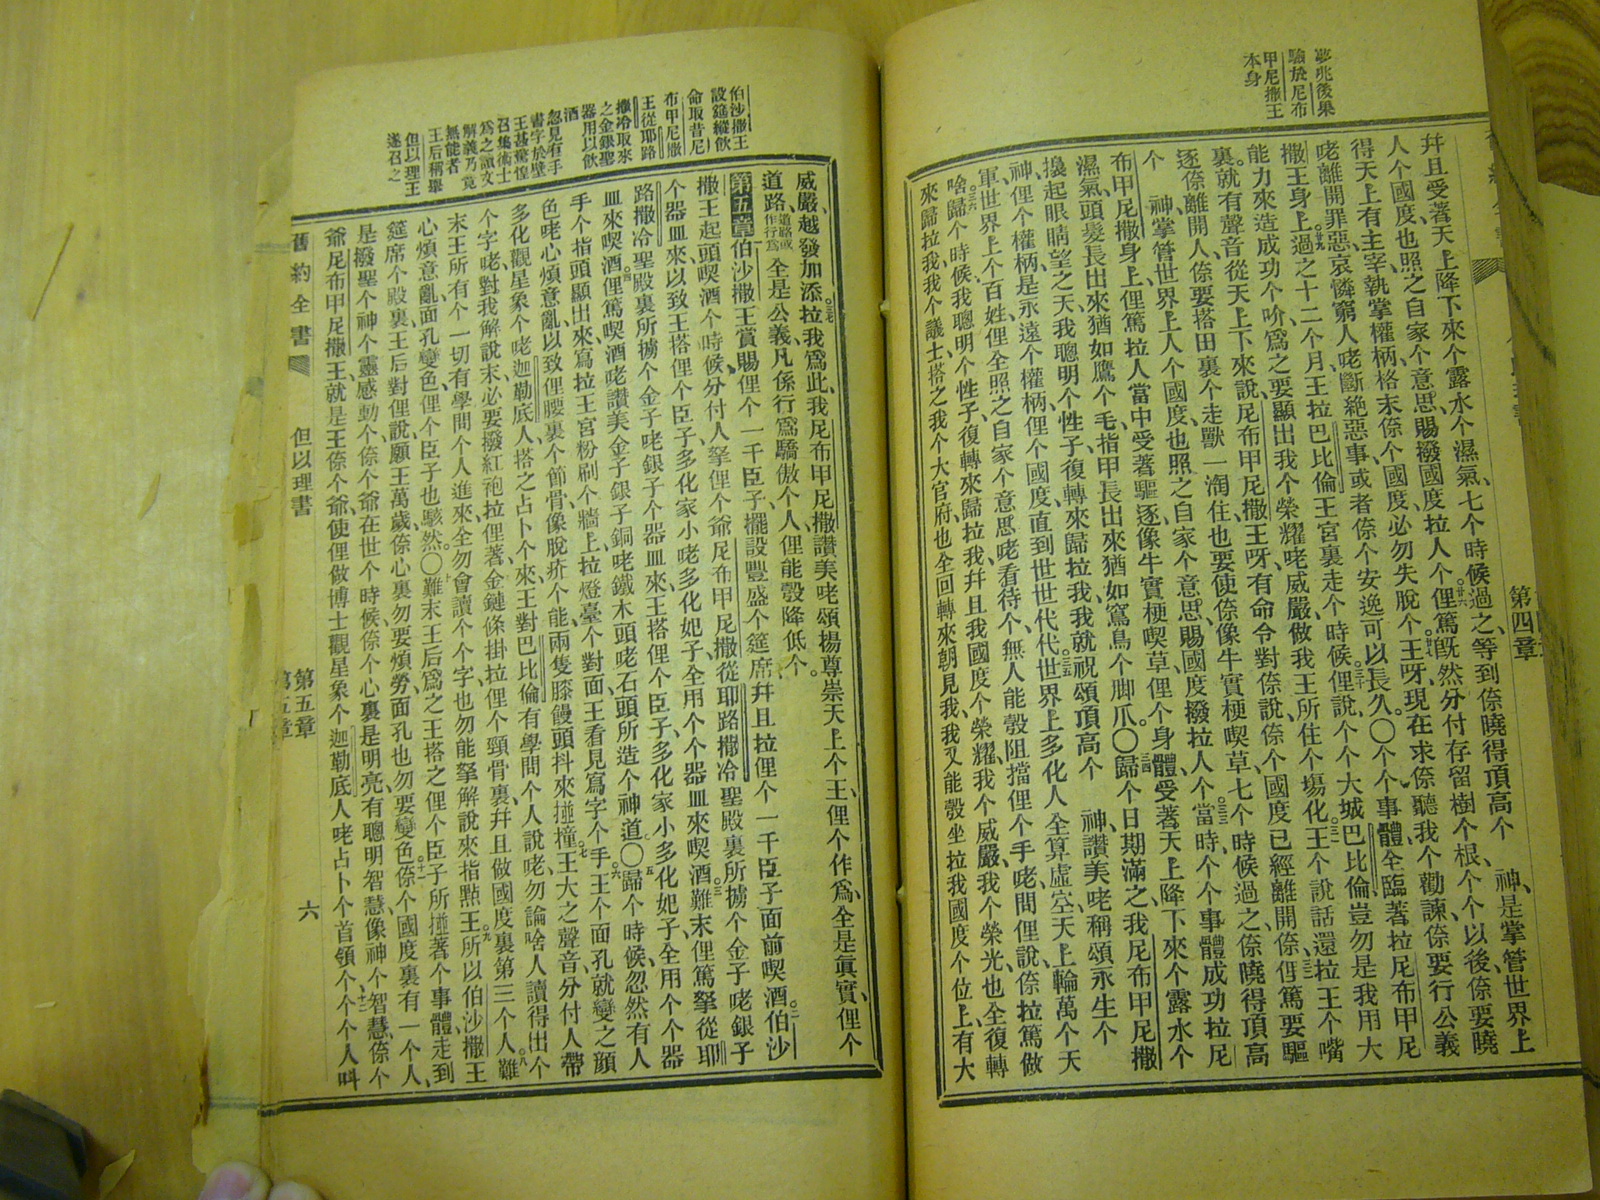 夢兆後果
驗於尼布
甲尼撒王
本身
第四章
幷且受著天上降下來个露水个濕氣、七个時候過之、等到倷曉得頂高个　神、是掌管世界上
人个國度、也照之自家个意思、賜撥國度拉人个。俚篤旣然分付存留樹个根、个个以後、倷要曉
得天上有主宰執掌權柄、格末倷个國度必勿失脫个。王呀、現在求倷聽我个勸諫、倷要行公義
咾離開罪惡、哀憐窮人咾斷絕惡事、或者倷个安逸可以長久。〇个个事體全臨著拉尼布甲尼
撒王身上。過之十二个月、王拉巴比倫王宮裏走个時候、俚說、个个大城巴比倫、豈勿是我用大
能力來造成功个吤、爲之要顯出我个榮耀咾威嚴、做我王所住个場化。王个說話還拉王个嘴
裏、就有聲音從天上下來說、尼布甲尼撒王呀、有命令對倷說、倷个國度已經離開倷、俚篤要驅
逐倷離開人、倷要搭田裏个走獸一淘住、也要使倷像牛實梗喫草、七个時候過之、倷曉得頂高
个　神掌管世界上人个國度、也照之自家个意思、賜國度撥拉人个。當時个个事體成功拉尼
布甲尼撒身上、俚篤拉人當中受著驅逐、像牛實梗喫草、俚个身體受著天上降下來个露水个
濕氣、頭髮長出來猶如鷹个毛、指甲長出來猶如窵鳥个脚爪。〇歸个日期滿之、我尼布甲尼撒
擡起眼睛望之天、我聰明个性子、復轉來歸拉我、我就祝頌頂高个　神、讚美咾稱頌永生个
神、俚个權柄是永遠个權柄、俚个國度、直到世世代代、世界上多化人全算虛空、天上輪萬个天
軍、世界上个百姓、俚全照之自家个意思咾看待个、無人能彀阻擋俚个手咾問俚說、倷拉篤做
啥。歸个時候、我聰明个性子、復轉來歸拉我、幷且我國度个榮耀、我个威嚴、我个榮光、也全復轉
來歸拉我、我个議士搭之我个大官府、也全回轉來朝見我、我又能彀坐拉我國度个位上、有大
伯沙撒王
設筵縱飲
命取昔尼
布甲尼撒
王從耶路
撒冷取來
之金銀聖
器用以飲
酒
忽見有手
書字於壁
王甚驚惶
召集術士
爲之讀文
解義乃竟
無能者
王后稱舉
但以理王
遂召之
威嚴、越發加添拉我。爲此、我尼布甲尼撒讚美咾頌揚尊崇天上个王、俚个作爲、全是眞實、俚个
道路道路或作行爲全是公義、凡係行爲驕傲个人、俚能彀降低个。
第五章 伯沙撒王賞賜俚个一千臣子、擺設豐盛个筵席、幷且拉俚个一千臣子面前喫酒。伯沙
撒王起頭喫酒个時候、分付人拏俚个爺尼布甲尼撒從耶路撒冷聖殿裏所擄个金子咾銀子
个器皿來、以致王搭俚个臣子、多化家小咾多化妃子、全用个个器皿來喫酒。難末俚篤拏從耶
路撒冷聖殿裏所擄个金子咾銀子个器皿來、王搭俚个臣子、多化家小多化妃子、全用个个器
皿來喫酒。俚篤喫酒咾讚美金子銀子銅咾鐵木頭咾石頭所造个神道。〇歸个時候、忽然有人
手个指頭顯出來、寫拉王宮粉刷个牆上、拉燈臺个對面、王看見寫字个手。王个面孔就變之顏
色咾心煩意亂、以致俚腰裏个節骨、像脫疥个能、兩隻膝饅頭抖來撞撞。王大之聲音、分付人帶
多化觀星象个咾迦勒底人、搭之占卜个來、王對巴比倫有學問个人說咾、勿論啥人讀得出个
个字咾、對我解說末、必要撥紅袍拉俚著、金鏈條掛拉俚个頸骨裏、幷且做國度裏第三个人。難
末王所有个一切有學問个人進來、全勿會讀个个字、也勿能拏解說來指點王。所以伯沙撒王
心煩意亂、面孔變色、俚个臣子也駭然。〇難末王后爲之王搭之俚个臣子所撞著个事體、走到
筵席个殿裏、王后對俚說、願王萬歲、倷心裏勿要煩勞、面孔也勿要變色。倷个國度裏有一个人、
是撥聖个神个靈感動个、倷个爺在世个時候、倷个心裏是明亮、有聰明智慧、像神个智慧、倷个
爺尼布甲尼撒王、就是王倷个爺、使俚做博士觀星象个迦勒底人咾占卜个首領。个个人叫
舊約全書
但以理書
第五章
六